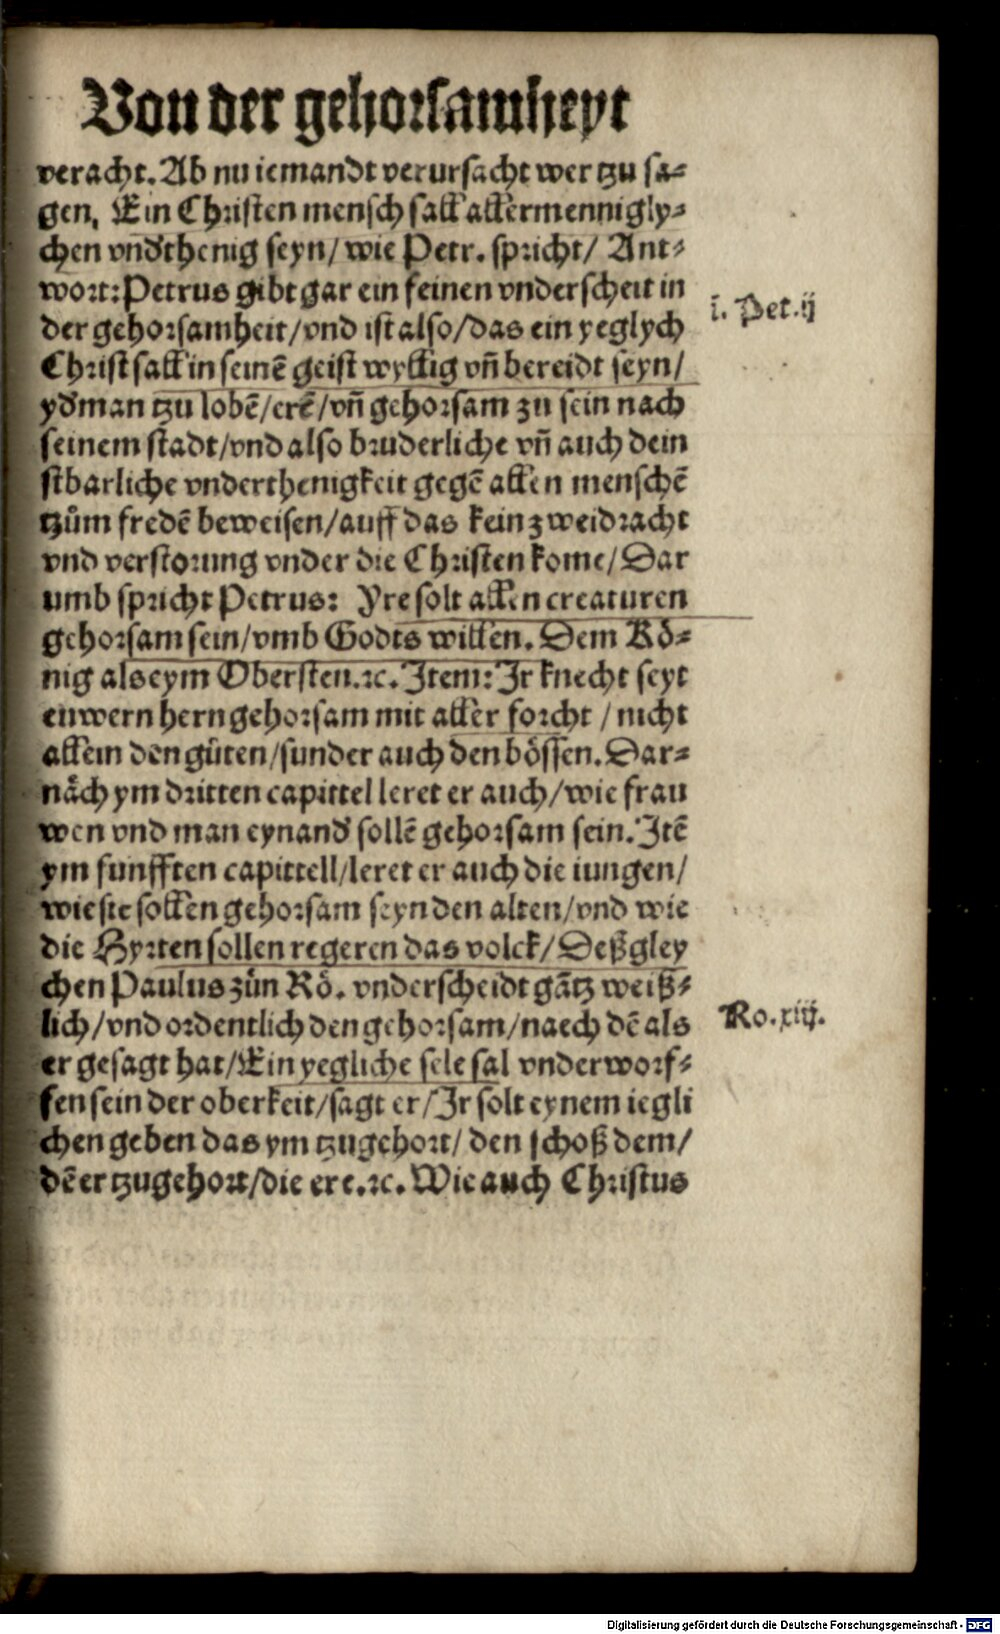 Von der gehorsamheyt
veracht. Ab nu iemandt verursacht wer tzu sa⸗
gen, Ein Christen mensch sall allermennigly⸗
chen vndʼthenig seyn/ wie Petr. spricht/ Ant⸗
wort: Petrus gibt gar ein feinen vnderscheit in
i. Pet. ij
der gehorsamheit/ vnd ist also/ das ein yeglych
Christ sall in seinē geist wyllig vñ bereidt seyn/
ydʼman tzu lobē/ erē/ vñ gehorsam zu sein nach
seinem stadt/ vnd also bruderliche vñ auch dein
stbarliche vnderthenigkeit gegē allen menschē
tzům fredē beweisen/ auff das kein zweidracht
vnd verstorung vnder die Christen kome/ Dar
umb spricht Petrus: Yre solt allen creaturen
gehorsam sein/ vmb Godts willen. Dem Kö⸗
nig als eym Obersten. ꝛc. Item: Ir knecht seyt
euwern hern gehorsam mit aller forcht / nicht
allein den gůten/ sunder auch den bössen. Dar⸗
nåch ym dritten capittel leret er auch/ wie frau
wen vnd man eynandʼ sollē gehorsam sein. Itē
ym funfften capittell/ leret er auch die iungen/
wie sie sollen gehorsam seyn den alten/ vnd wie
die Hyrten sollen regeren das volck/ Deßgley
chen Paulus zůn Rö. vnderscheidt gātz weiß⸗
lich/ vnd ordentlich den gehorsam/ naech dē als
Ro. xiij.
er gesagt hat/ Ein yegliche sele sal vnderworf⸗
fen sein der oberkeit/ sagt er/ Ir solt eynem iegli
chen geben das ym tzugehort/ den schoß dem/
dē er tzugehort/ die ere. ꝛc. Wie auch Christus
Digitalisierung gefördert durch die Deutsche Forschungsgemeinschaft - DFG